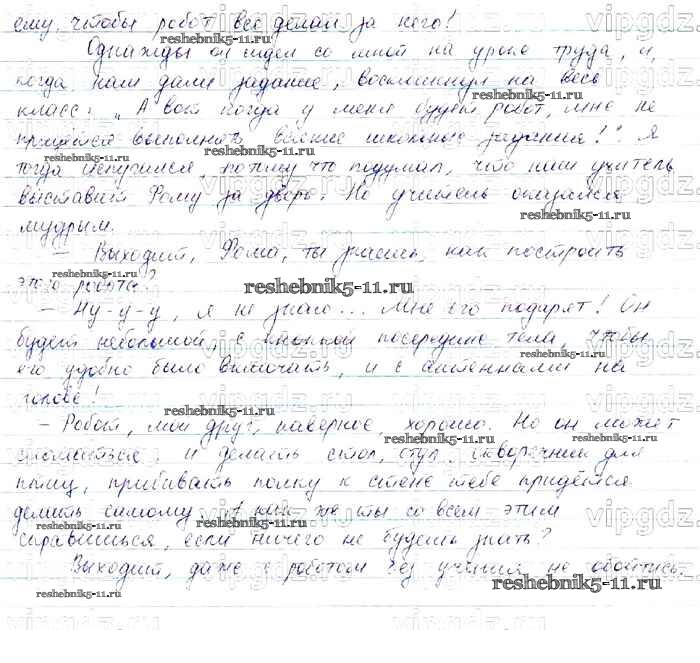 ему, чтобы робот всё делал за него!
Однажды он сидел со мной на уроке труда, и,
когда нам дали задание, воскликнул на весь
класс: „А вот когда у меня будет робот, мне не
придётся выполнять всякие школьные задания!". Я
тогда испугался, потому что подумал, что наш учитель
выставит Рому за дверь. Но учитель оказался
мудрым.
– Выходит, Рома, ты знаешь, как построить
этого робота?
– Ну-у-у, я не знаю... Мне его подарят! Он
будет небольшой, с кнопкой посередине тела, чтобы
его удобно было включать, и с антеннами на
голове!
– Робот, мой друг, наверное, хорошо. Но он может
сломаться, и делать стол, стул, скворечник для
птиц, прибивать полку к стене тебе придётся
делать самому. А как же ты со всем этим
справишься, если ничего не будешь знать?
Выходит, даже с роботом без учения не обойтись.
reshebnik5-11.ru
vipgdz.ru